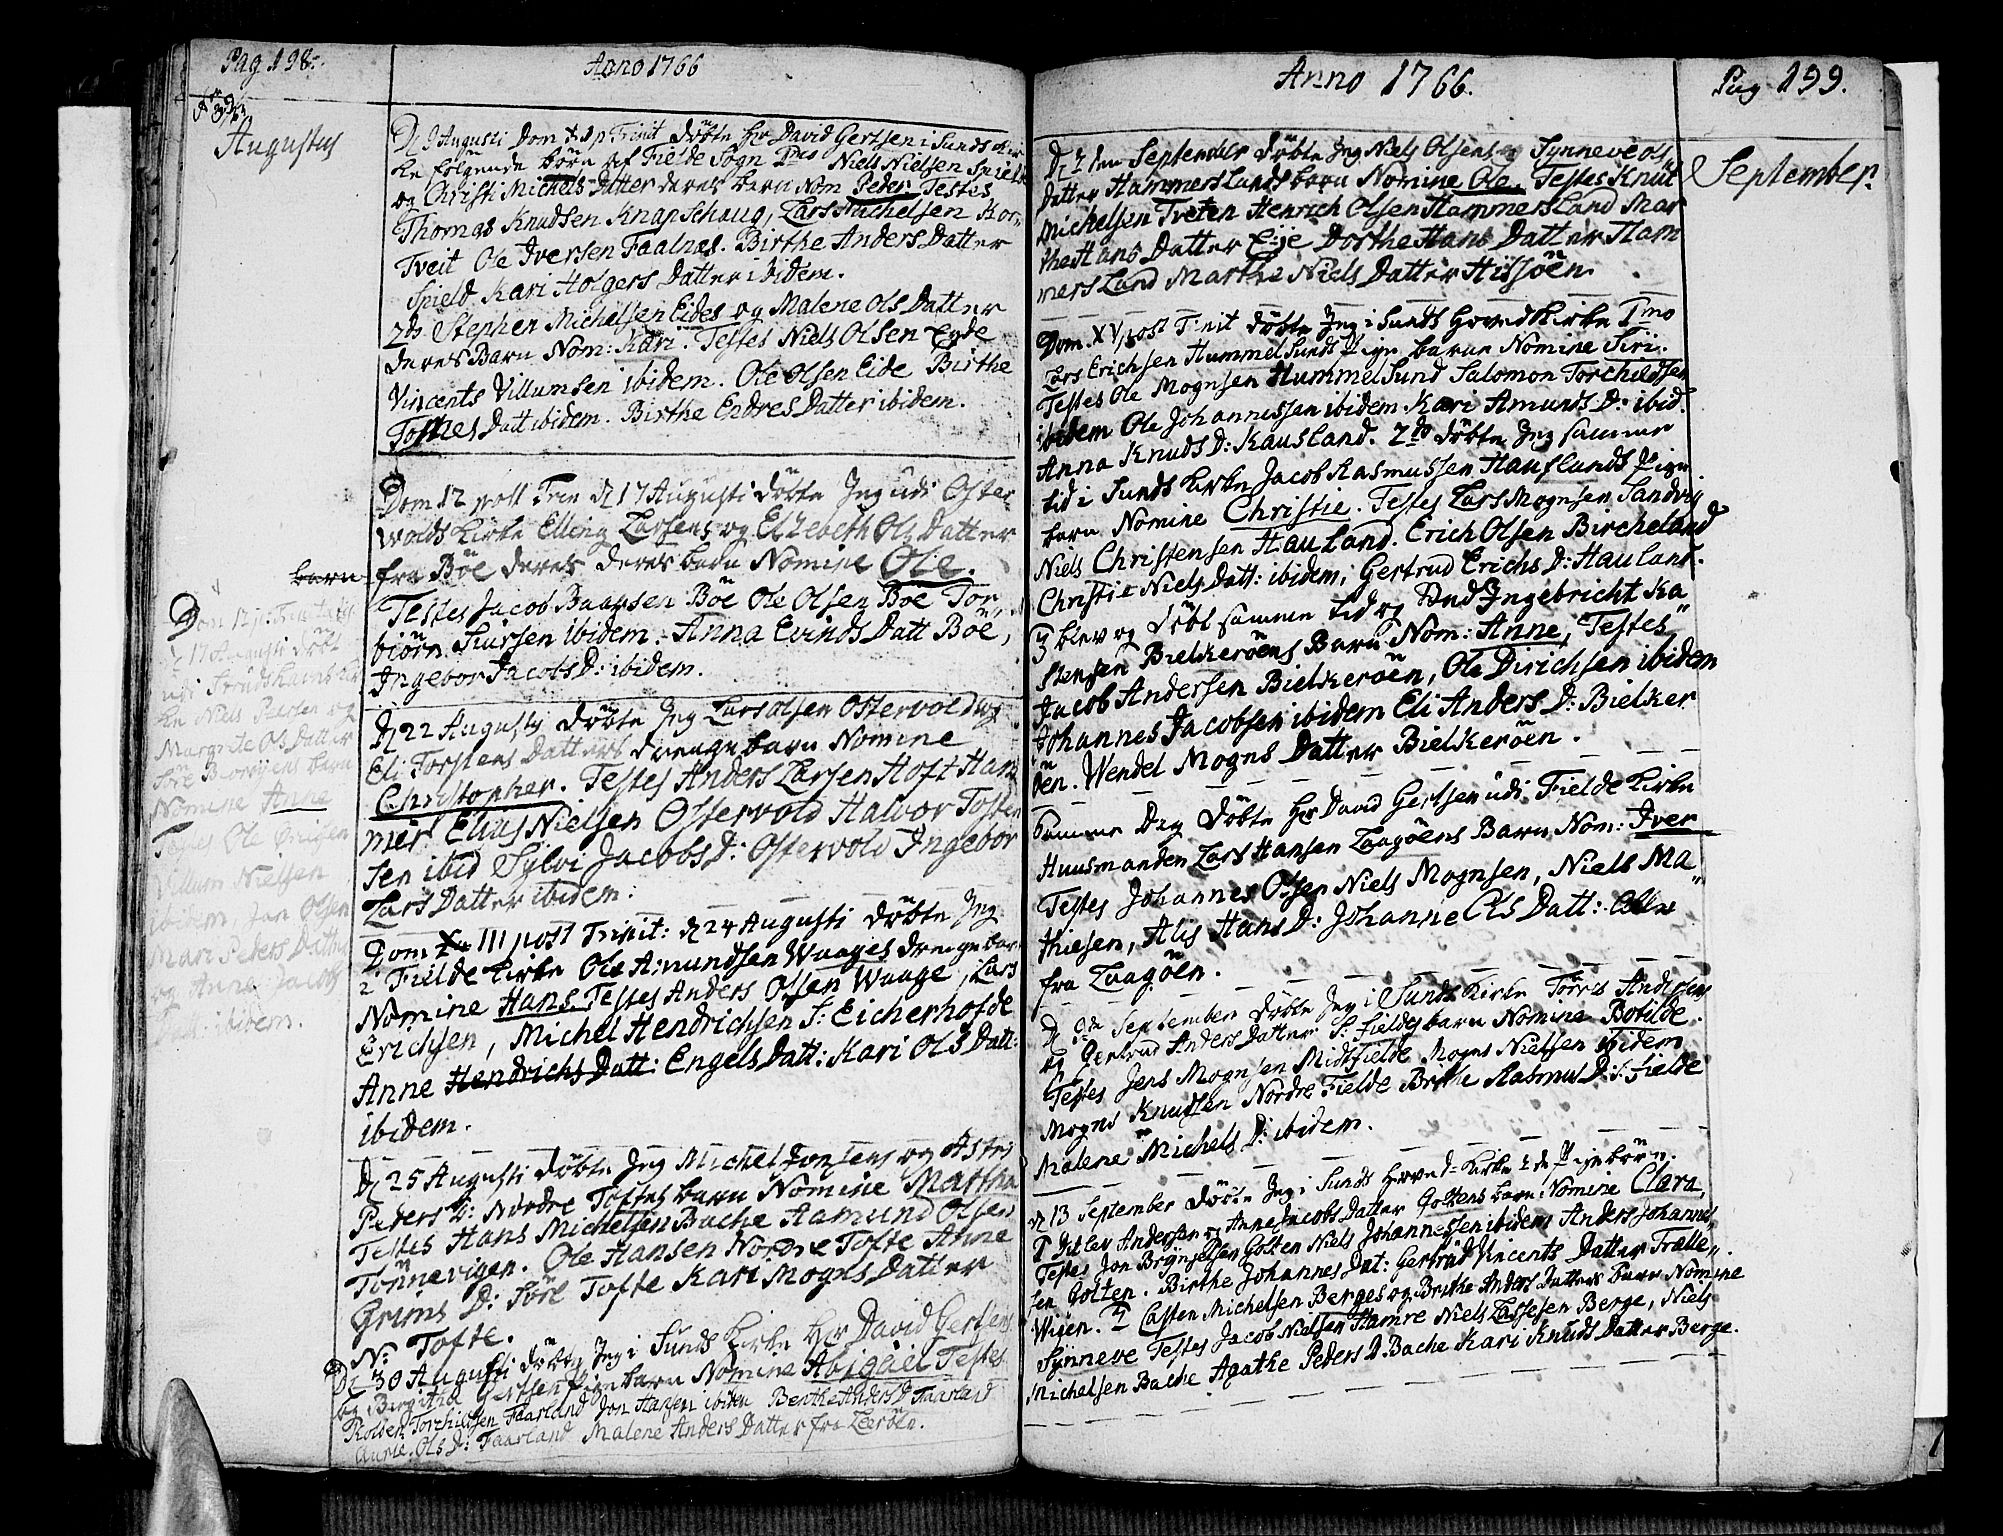 Pag 198.
Anno 1766
Augustus
D 9 Augusti Dom Trinit döbte Hr David Gertsen i Sunds
ke følgende börn af Fielde Sogn Imo Niels Nielsen Spield
og Christi Michels Datter deres barn Nom Peder Testes
Thomas Knudsen Knapschaug, Lars Michelsen Hor
Tveit Ole Iversen Faalnes. Birthe Anders Datter
Spield Kari Holgers Datter ibidem.
2do Stephen Michelsen Eides og Malene Ols Datter
deres Barn Nom: Kari. Testes Niels Olsen Eyde
Vincents Villumsen ibidem. Ole Olsen Eide Birthe
Datt ibidem. Birthe Endres Datter ibidem.
Dom 12 post Trin d 17 Augusti döbte Jeg udi Oster
volds kirke Elling Larsens og Elzebeth Ols Datter
barn fra Böe deres deres barn Nomine Ole.
Testes Jacob Baarsen Böe Ole Olsen Böe Tor
biörn ibidem. Anna Evinds Datt Böe,
Ingebor Jacobs D: ibidem.
D 22 Augusty döbte Jeg Lars olsen Ostervold og
Eli Torstens Datters drenge barn Nomine
Christopher. Testes Anders Larsen Hoft Ham
mer Elius Nielsen Ostervold Halvor Tosten
sen ibid Sylvi Jacobs D: Ostervold Ingebor
Lars Datter ibidem.
Dom III post Trinit: d 24 Augusti döbte Jeg
i Fielde kirke Ole Amundsen Waages drenge bar
Nomine Hans Testes Anders Olsen Waage, Lars
Erichsen, Michel Hendrichsen S: Eicherhofde
Anne Hendrichs Datt: Engels Datt: Kari Ols Datt:
ibidem.
D 25 Augusti döbte Jeg Michel Jonsens og Astri
Peders D: Nordre Toftes barn Nomine Martha
Testes Hans Michelsen Bache Aamund Olsen
Tönnevigen. Ole Hansen Nordre Tofte Anne
Grims D: Söre Tofte Kari Mogns Datter
N: Tofte.
D 30 Augusti döbte Jeg i Sunds kirke Hr David Gertsens
og Bergithe Pige barn Nomine Abigael Testes
Torchilsen Faarland Jon Hansen ibidem Benthe Anders D Faarland
Ols D: Faarland Malene Anders Datter fra Leeröen.
Dom 12 p: Trinitatis
d 17 Augusti döbt
udi Sunds
ke Niels Peersen og
Margrete Ols Datter
barn
Nomine Anne
Testes Ole
Villum Nielsen
ibidem, Jon Olsen
Mari Peders Datter
og Anne Jacobs
Datt: ibidem.
Anno 1766.
Pag 199.
September.
D 7 September döbte Jeg Niels Olsens og Synneve Ols
Datter Hammerslands barn Nomine Ole. Testes Knut
Michelsen Tveten Henrich Olsen Hammersland Mar
the Hans Datter Eije Dorthe Hans Datter Ham
mersland Marthe Niels Datter Hissöen.
Dom. XV, post Trinit döbte Jeg i Sunds Hoved kirke Imo
Lars Erichsen Hummelsunds Pige barn Nomine Siri.
Testes Ole Mognsen Hummelsund Salomon Torchildsen
ibidem Ole Johannessen ibidem. Kari Amunds D: ibid.
Anna Knuds D: Kausland. 2do döbte Jeg samme
tid i Sunds kirke Jacob Rasmussen Hauglands Pige
barn Nomine Christie. Testes Lars Mognsen Sandvig
Niels Christensen Hauland. Erich Olsen Bircheland
Christie Niels Datt: ibidem, Gertrud Erichs D: Hauland.
3 blev og döbt samme tid og Ingebricht Ka
stensen Bielkeröens Barn Nom: Anne, Testes
Jacob Andersen Bielkeröen, Ole Dirichsen ibidem
Johannes Jacobsen ibidem Eli Anders D: Bielker
öen. Wendel Mogns Datter Bielkeröen.
Samme Dag döbte Hr David Gertsen udi Fielde kirke
Huusmanden Lars Hansen Laagöens Barn Nom: Iver
Testes Johannes Olsen Niels Mognsen, Niels Ma
thiesen, Alis Hans D: Johanne Ols Datt: alle
fra Laagöen.
D September döbte Jeg i Sunds kirke Andersens
og Gertrud Anders Datter S: Fieldes barn Nomine Botilde.
Testes Jens Mognsen Midtfielde Mogns Nielsen ibidem
Mogns Knudsen Nordre Fielde Brithe Rasmus D: S: Fielde
Malene Michels D: ibidem.
D 13 September döbte Jeg i Sunds Hoved-kirke 2de Pige börn.
1 Ditlev Andersen og Anne Jacobs Datter Goltens barn Nomine Clara,
Testes Jon Golten Niels Johannessen ibidem Anders Johannes
sen Golten. Birthe Johannes Dat: Gertrud Vincents Datter Trælle
Wigen. 2 Casten Michelsen Berges og Brithe Anders Datters barn Nomine
Synneve Testes Jacob Nielsen Hamre Niels Lassesen Berge, Niels
Michelsen Bache Agathe Peders D. Bache Kari Knuds Datter Berge.